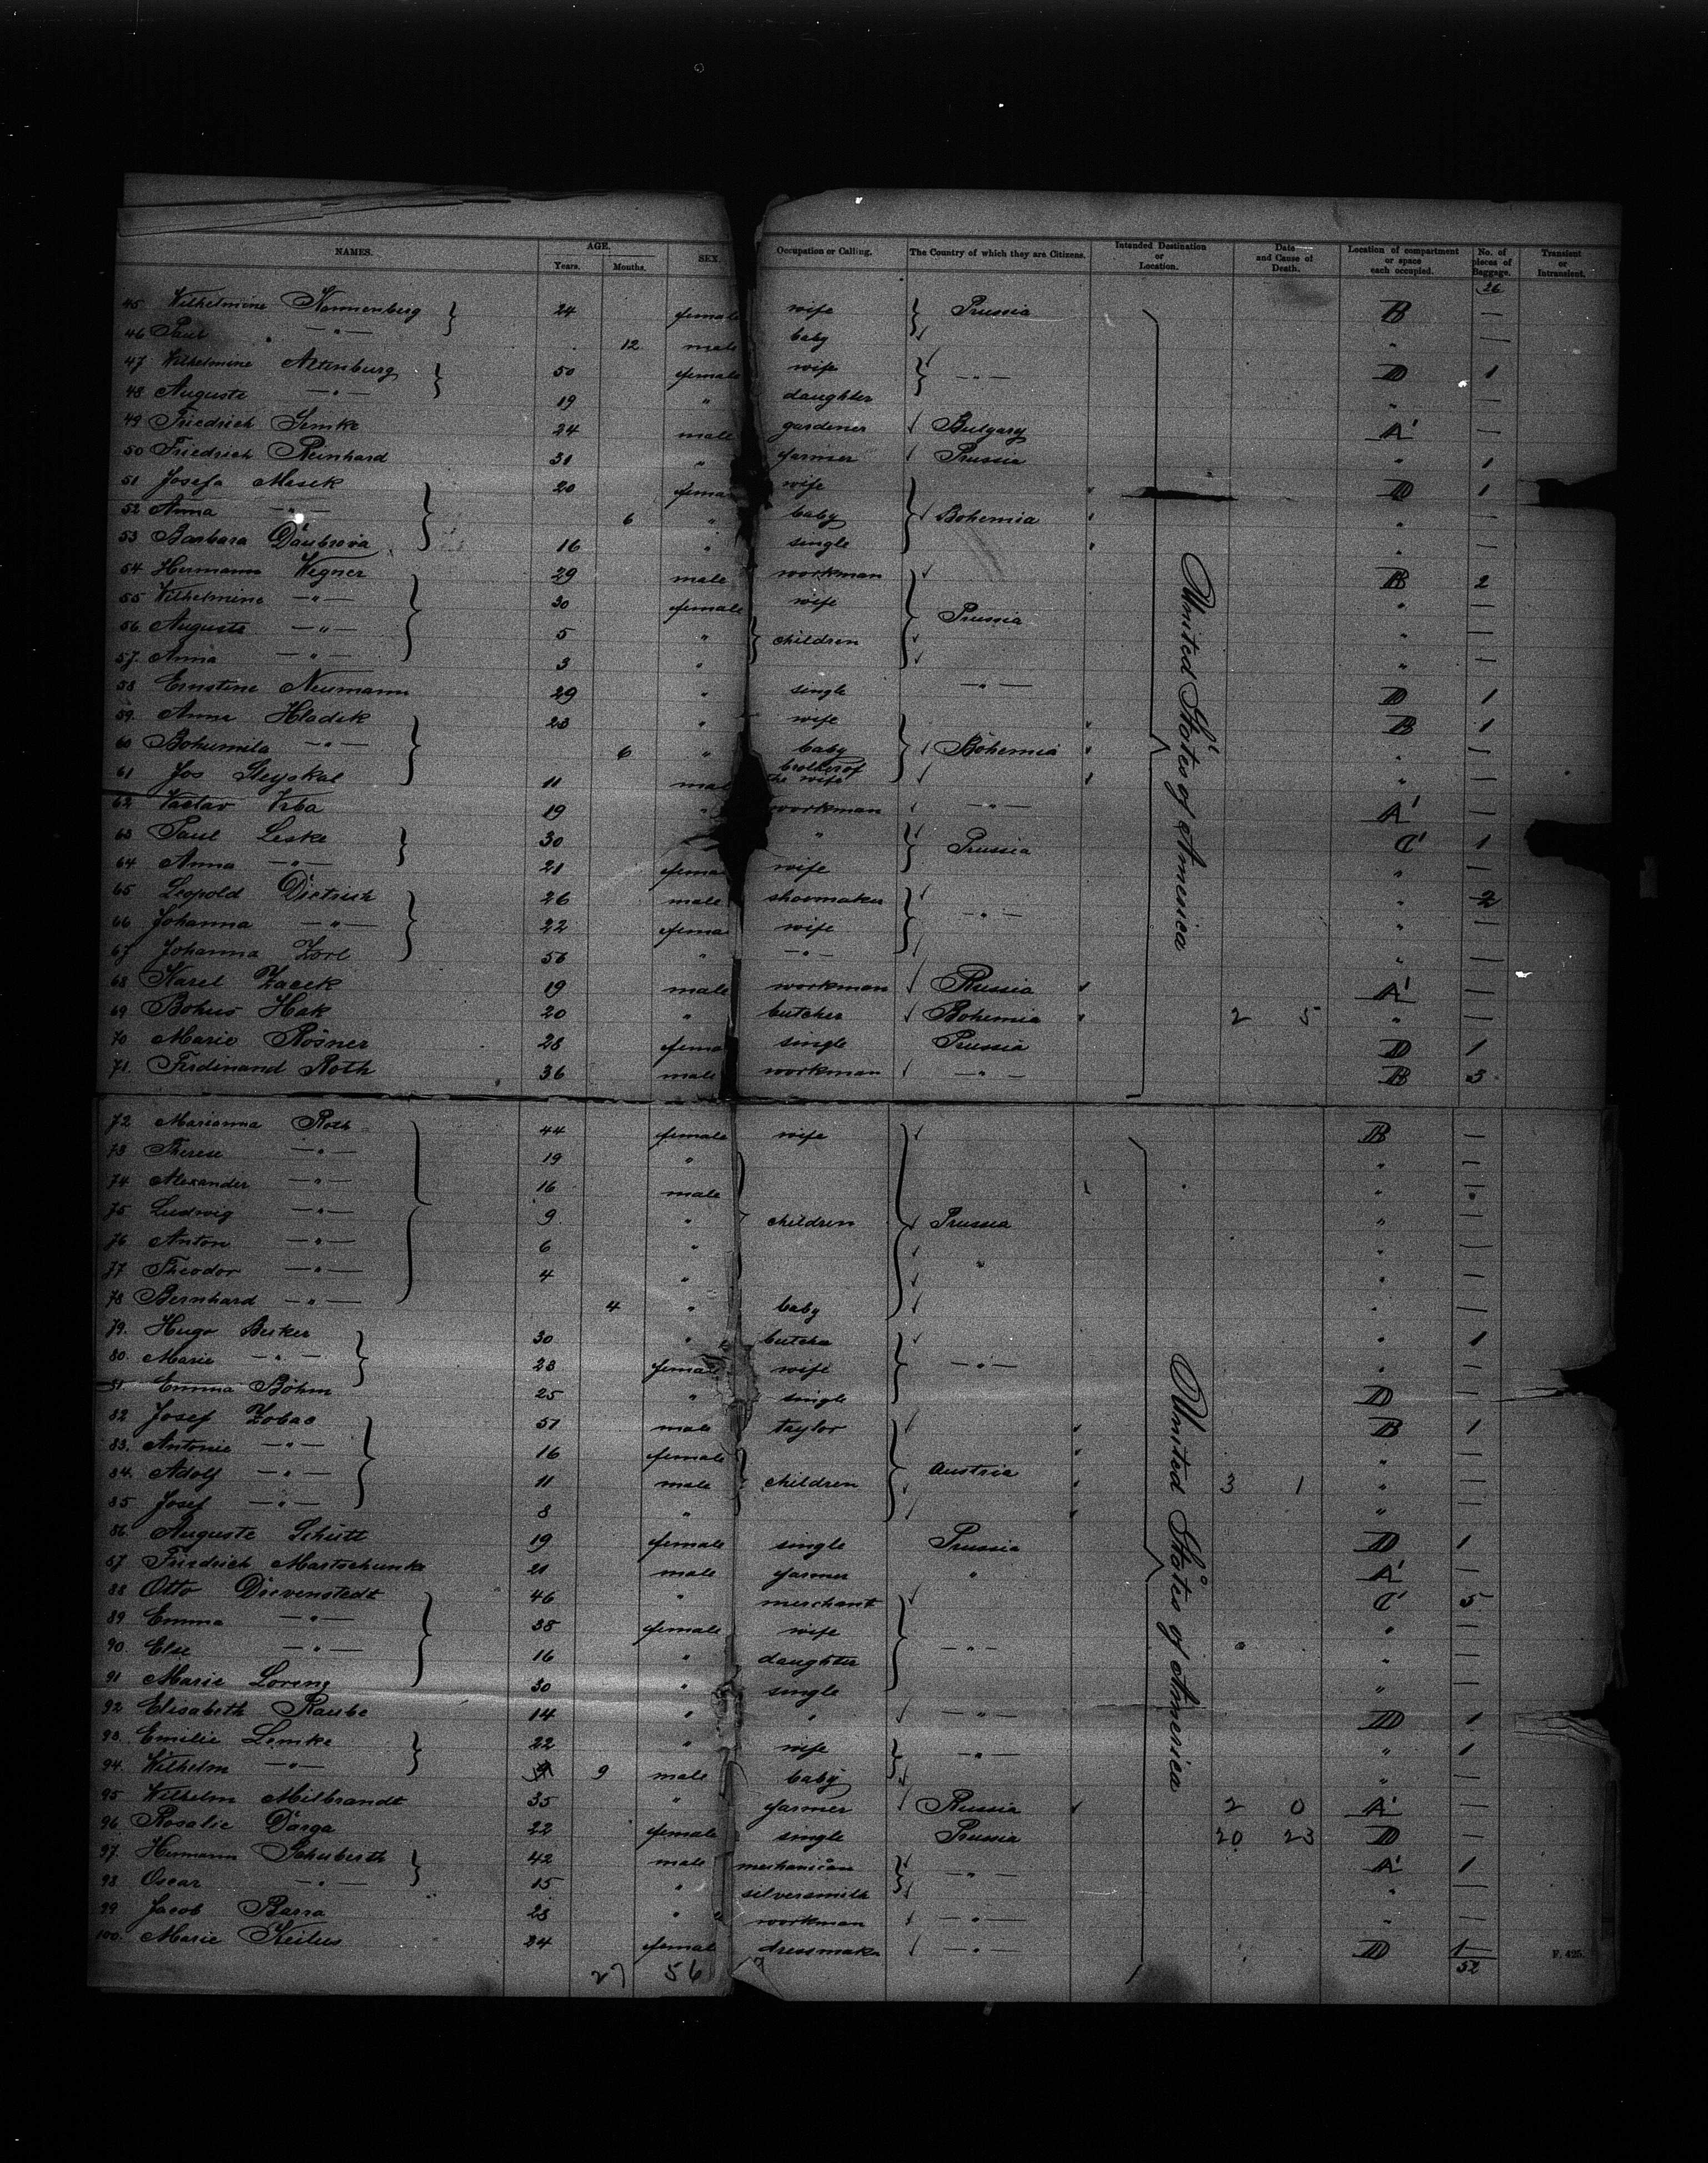 NAMES. AGE. Years. Months. SEX. Occupation or Calling. The Country of which they are Citizens. Intended Destination or Location. Date and Cause of Death. Location of compartment or space each occupied. No. of pieces of Baggage. Transient or Intransient.
26
45 Wilhelmine Kannenberg 24 female wife Prussia B —
46 Paul —"— 12 male baby " —
47 Wilhelmine Altenburg 50 female wife —"— D 1
48 Auguste —"— 19 " daughter " —
49 Friedrich Lemke 24 male gardener Bulgary A' —
50 Friedrich Reinhard 31 " farmer Prussia " 1
51 Josefa Masek 20 female wife D 1
52 Anna —"— 6 " baby Bohemia " —
53 Barbara Daubrova 16 " single " —
54 Hermann Wegner 29 male workman B 2
55 Wilhelmine —"— 30 female wife Prussia " —
56 Auguste —"— 5 " children " —
57. Anna —"— 3 " " —
58 Ernstine Neumann 29 " single —"— D 1
59. Anna Hladik 23 " wife B 1
60 Bohumila —"— 6 " baby Bohemia " —
61 Jos Steyskal 11 male brother of the wife " —
62 Vaclav Vrba 19 " workman —"— A' —
63 Paul Leske 30 " Prussia C' 1
64 Anna —"— 21 female wife "
65 Leopold Dietrich 26 male shoemaker —"— " 2
66 Johanna —"— 22 female wife " —
67 Johanna Zorl 56 " —"— " —
68 Karel Zacek 19 male workman Russia A' —
69 Bohus Hak 20 " butcher Bohemia 2 5 " —
70 Marie Rösner 28 female single Prussia D 1
71. Ferdinand Roth 36 male workman —"— B 3
United States of America
72 Marianna Roth 44 female wife B —
73 Therese —"— 19 " " —
74 Alexander —"— 16 male "
75 Ludwig —"— 9 " children Prussia " —
76 Anton —"— 6 " " —
77 Theodor —"— 4 " " " —
78 Bernhard —"— 4 " baby " —
79. Hugo Becker 30 " butcher " 1
80. Marie —"— 23 female wife —"— " —
81 Emma Böhm 25 " single D —
82 Josef Zobac 51 male taylor B 1
83. Antonie —"— 16 female " —
84. Adolf —"— 11 male children Austria 3 1 " —
85 Josef —"— 8 " " —
86. Auguste Schütt 19 female single Prussia D 1
87 Friedrich Martschunke 21 male farmer " A' —
88 Otto Dievenstedt 46 " merchant C' 5
89 Emma —"— 38 female wife " —
90. Else —"— 16 " daughter —"— " —
91 Marie Loring 30 " single " —
92 Elisabeth Raube 14 " " —"— D 1
93. Emilie Lemke 22 " wife —"— " 1
94. Wilhelm —"— 9 male baby " —
95 Wilhelm Milbrandt 35 " farmer Russia 2 0 A' —
96 Rosalie Darga 22 female single Prussia 20 23 D —
97. Hermann Schuberth 42 male mechanican —"— A' 1
98 Oscar —"— 15 " silversmith " —
99 Jacob Barra 23 " workman —"— " —
100. Marie Keilus 24 female dressmaker —"— D 1
United States of America
27 56 52
F. 425.